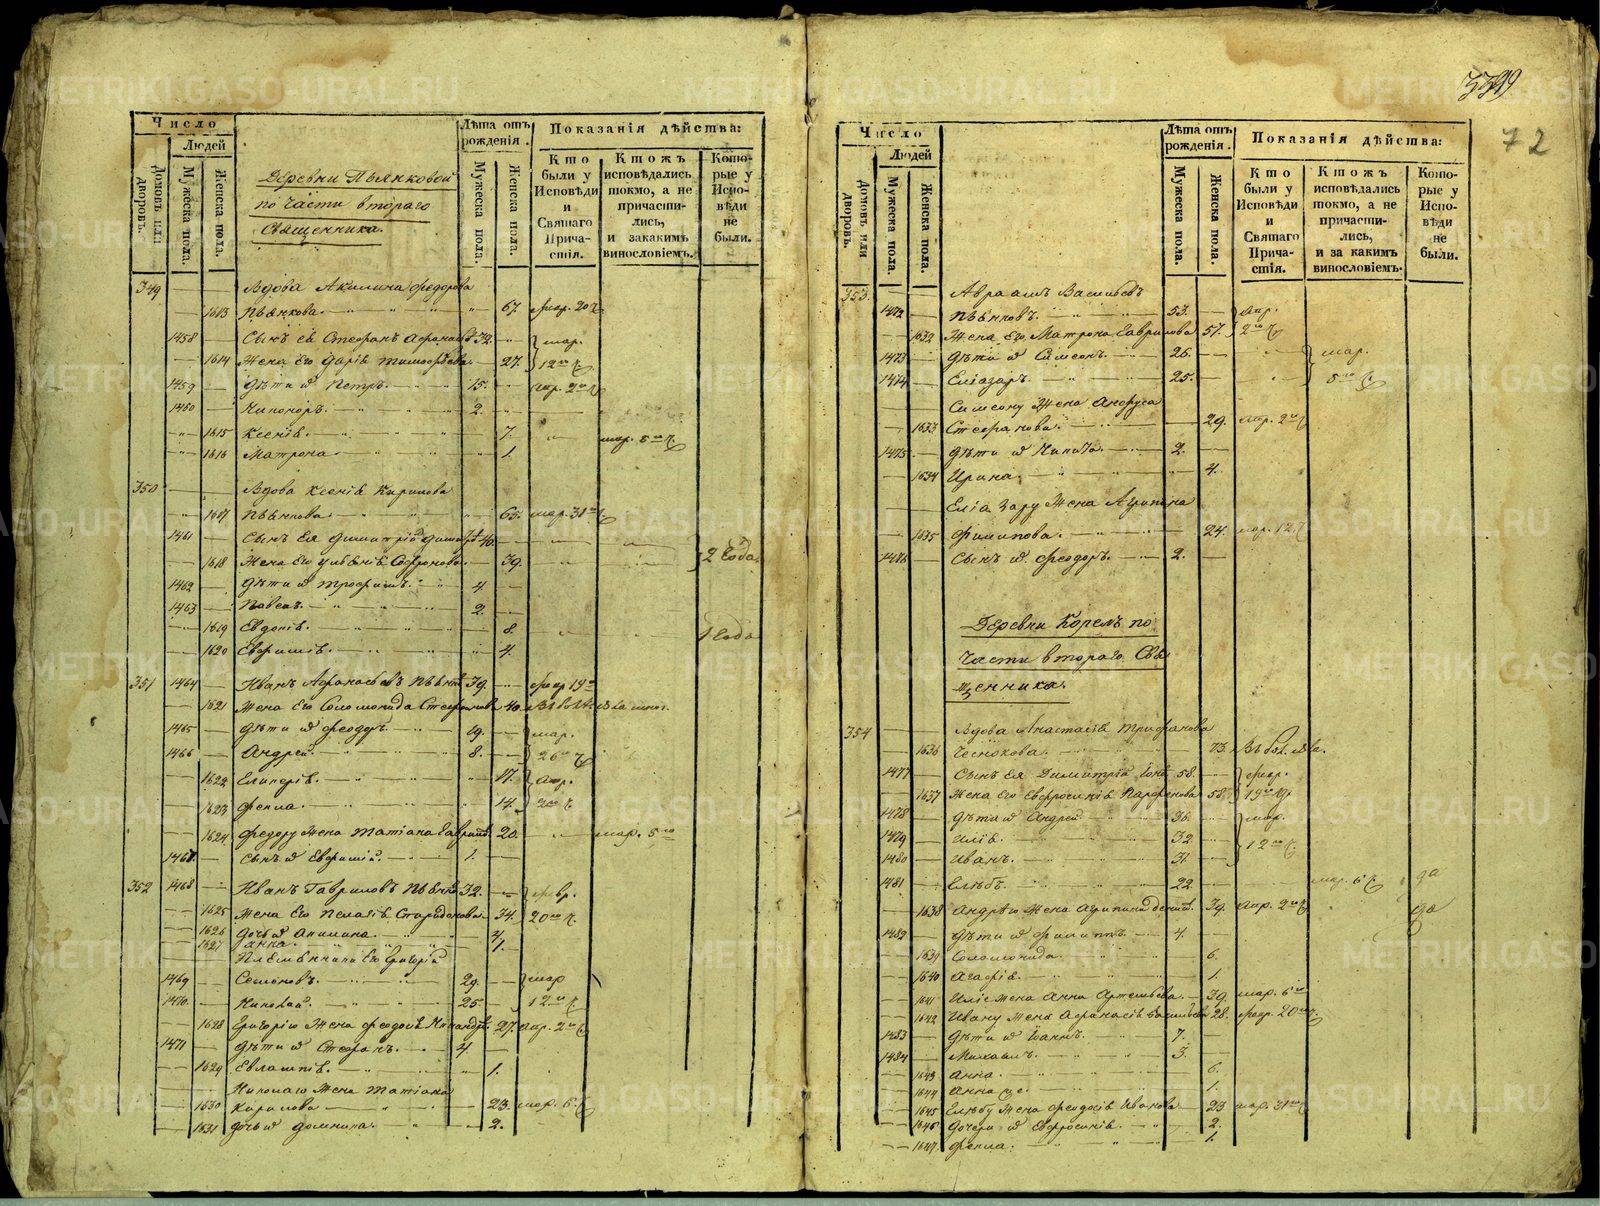 339
72
Число
Людей
Домовъ или дворовъ.
Мужеска пола.
Женска пола.
Деревни Пьянковой
по части втораго
Священника.
Лѣта отъ рожденія.
Мужеска пола.
Женска пола.
Показанія дѣйства:
Кто были у Исповѣди и Святаго Прича- стія.
Ктожъ исповѣдались токмо, а не причасти- лись, и закакимъ винословіемъ.
Кото- рые у Испо- вѣди не были.
349 Вдова Акилина Федорова
1613 Пьянкова. 67. февр. 20
1458 Сынъ ея Стефанъ 32. мар.
1614 Жена Его Дарія Тимофѣева 27. 12
1459 Дѣти ихъ Петръ. 15. апр. 2
1460 Никоноръ. 2.
1615 Ксенія. 7. мар. 5
1616 Матрона 1.
350 Вдова Ксенія Кирилова
1617 Пьянкова. 65. мар. 31
1461 Сынъ Ея Димитрій 40.
1618 Жена Его Ульянія Софронова. 39. 2 года.
1462 Дѣти ихъ Трофимъ. 4.
1463 Павелъ. 2.
1619 Евдокія. 8. 1 года
1620 Евфимія. 4.
351 1464 Иванъ Афанасьевъ 39. февр 19
1621 Жена Его Соломонида 40.
1465 Дѣти ихъ Феодоръ. 19. мар.
1466 Андрей. 8. 26
1622 17. апр.
1623 Фекла. 14. 2
1624 Федору Жена Татіана 20. мар. 5
1467 Сынъ ихъ Евфимій. 1.
352 1468 Иванъ Гавриловъ 32. февр.
1625 Жена Его Пелагія Спиридонова. 34. 20
1626 Дочь ихъ Акилина. 4.
1627 Анна. 1.
Племянники Его Григорій
1469 Семеновъ. 29. мар
1470 Николай. 25 12
1628 Григорію Жена Феодосія 27. апр. 2
1471 Дѣти ихъ Стефанъ. 4
1629 Евлампія. 1.
Николаю Жена Татіана
1630 Карпова 23. мар. 6
1631 Дочь ихъ Домника. 2.
Число
Людей
Домовъ или дворовъ.
Мужеска пола.
Женска пола.
Лѣта отъ рожденія.
Мужеска пола.
Женска пола.
Показанія дѣйства:
Кто были у Исповѣди и Святаго Прича- стія.
Ктожъ исповѣдались токмо, а не причасти- лись, и за какимъ винословіемъ.
Кото- рые у Испо- вѣди не были.
353. Авраамъ Васильевъ
1472 Пьянковъ. 53. апр.
1632 Жена Его Матрона Гаврилова 57. 2
1473 Дѣти ихъ Симеонъ. 26. мар.
1474 Еліазаръ. 25. 5
Симеону Жена
1633 Стефанова. 29. апр. 2
1475 Дѣти ихъ Никита. 2.
1634 Ирина. 4.
Еліазару Жена Агрипена
1635 Филипова. 24. мар. 12
1476 Сынъ ихъ Феодоръ. 2.
Деревни Корелъ по
части втораго Свя
щенника.
354 Вдова Анастасія Трифонова
1636 Чеснокова. 73.
1477 Сынъ Ея Димитрій 58. февр.
1637 Жена Его Евфросинія Парфенова 58. 19
1478 Дѣти ихъ Андрей 36. мар.
1479 Илія. 32 12
1480 Иванъ. 31.
1481 Глѣбъ. 22 мар. 6 да
1638 Андрѣю Жена Агрипина 39. апр. 2 да
1482 Дѣти ихъ Филиппъ 4.
1639 Соломонида. 6.
1640 Агафія. 1.
1641 Иліѣ Жена Анна Артемьева. 39. мар. 6
1642 Ивану Жена Афанасія 28. февр. 20
1483 Дѣти ихъ Іоаннъ. 7.
1484 Михаилъ. 3.
1643 Анна. 6.
1644 Анна же. 1.
1645 Глѣбу Жена Феодосія Иванова 23 мар. 31
1646 Дочери ихъ Евфросинія. 2.
1647 Фекла. 1.